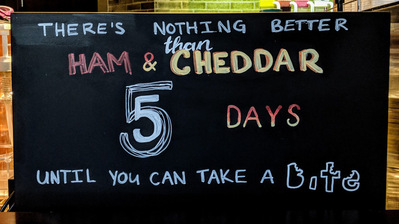 THERE'S NOTHING BETTER
than
HAM & CHEDDAR
5 DAYS
UNTIL YOU CAN TAKE A bite